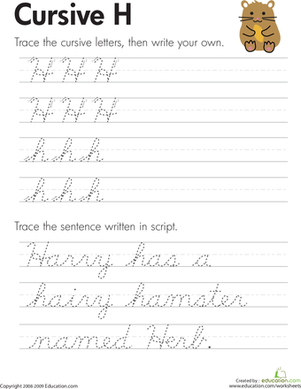 Cursive H
Trace the cursive letters, then write your own.
H H H
H H H
h h h
h h h
Trace the sentence written in script.
Harry has a
hairy hamster
named Herb.
Copyright 2008-2009 Education.com
Created by: education.com
www.education.com/worksheets